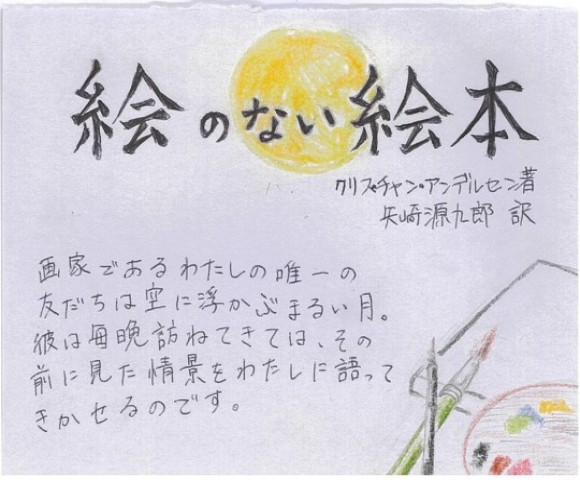 絵のない絵本
クリスチャン・アンデルセン著
矢崎源九郎 訳
画家であるわたしの唯一の
友だちは空に浮かぶまるい月。
彼は毎晩訪ねてきては、その
前に見た情景をわたしに語って
きかせるのです。